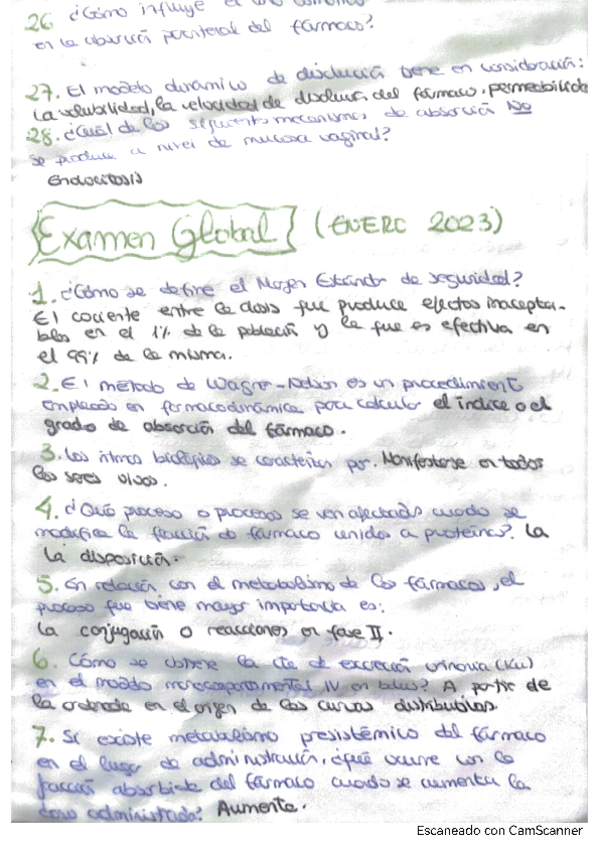 26. ¿Cómo influye el
en la absorción parenteral del fármaco?
27. El modelo dinámico de disolución tiene en consideración:
La solubilidad, la velocidad de disoluc. del fármaco, permeabilida
28. ¿Cuál de los siguientes mecanismos de absorción NO
se produce a nivel de mucosa vaginal?
Endocitosis
Examen Global (ENERO 2023)
1. ¿Cómo se define el Margen Estándar de seguridad?
El cociente entre la dosis que produce efectos inacepta-
bles en el 1% de la población y la que es efectiva en
el 99% de la misma.
2. El método de Wagner-Nelson es un procedimiento
empleado en farmacodinámica para calcular el índice o el
grado de absorción del fármaco.
3. Los ritmos biológicos se caracterizan por. Manifestarse en todos
los seres vivos.
4. ¿Qué proceso o procesos se ven afectados cuando se
modifica la fracción de fármaco unidos a proteínas? La
la disposición.
5. En relación con el metabolismo de los fármacos, el
proceso que tiene mayor importancia es:
La conjugación o reacciones en fase II.
6. Cómo se obtiene la cte de excreción urinaria (Ku)
en el modelo monocompartimental IV en bolus? A partir de
la ordenada en el origen de las curvas distributivas.
7. Si existe metabolismo presistémico del fármaco
en el lugar de administración, ¿qué ocurre con la
fracción absorbida del fármaco cuando se aumenta la
dosis administrada? Aumenta.
Escaneado con CamScanner